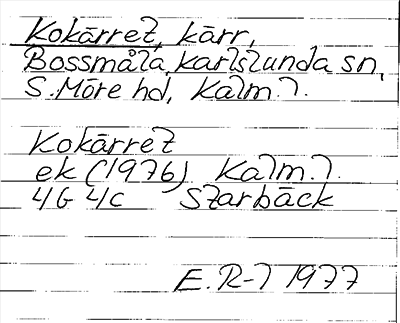 Kokärret, kärr,
Bossmåla, karlslunda sn,
S. Möre hd, Kalm. l.
Kokärret
ek (1976) Kalm. l.
4G 4c Starbäck
E. R-l 1977